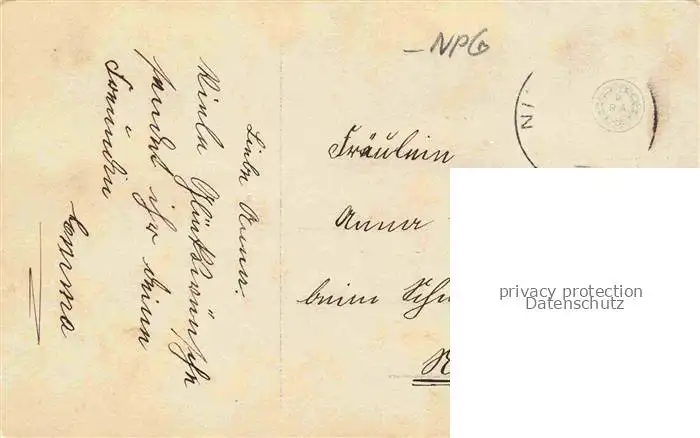 NPG
IN
Liebe Anna.
Viele Glückwünsche
sendet ihr deine
Freundin
Emma
Fräulein
Anna
beim Sch
privacy protection
Datenschutz